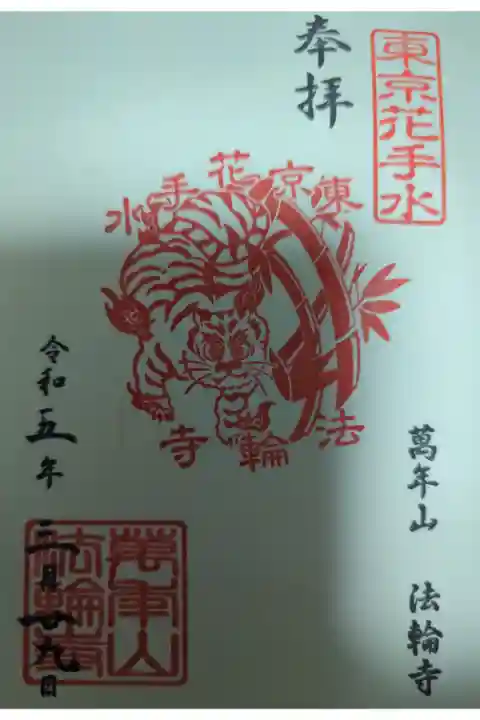 東京花手水
奉拝
東京花手水
法輪寺
萬年山 法輪寺
萬年山
法輪寺
令和五年 三月廿九日